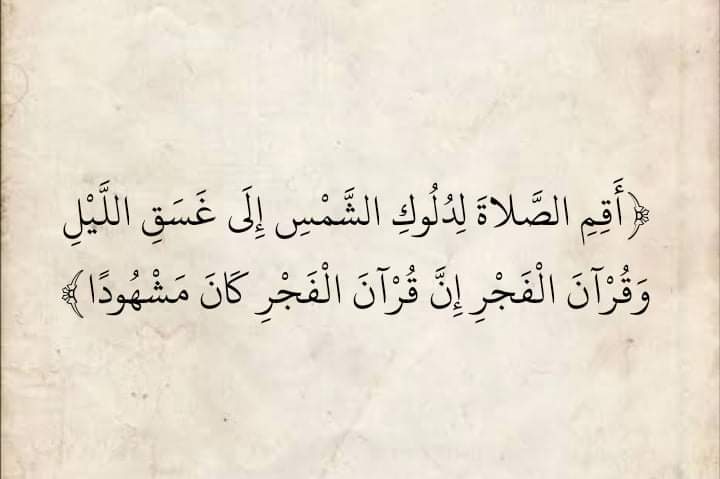 ﴿أَقِمِ الصَّلاةَ لِدُلُوكِ الشَّمْسِ إِلَى غَسَقِ اللَّيْلِ
وَقُرْآنَ الْفَجْرِ إِنَّ قُرْآنَ الْفَجْرِ كَانَ مَشْهُودًا﴾